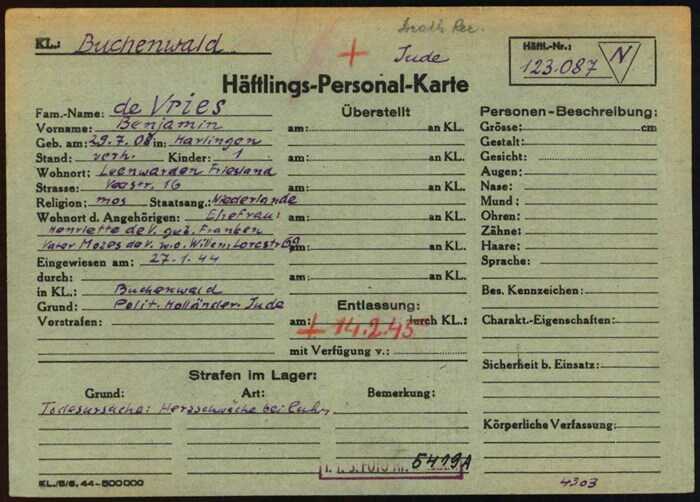 Death Rec.
KL.: Buchenwald
+ Jude
Häftl.-Nr.:
123.087 N
Häftlings-Personal-Karte
Fam.-Name: de Vries
Vorname: Benjamin
Geb. am: 29.7.08 in: Harlingen
Stand: verh. Kinder: 1
Wohnort: Leenwarden Friesland
Strasse:
Religion: mos Staatsang.: Niederlande
Wohnort d. Angehörigen: Ehefrau:
Henriette de V. geb. Franken
Vater Mozes de V. w.o.
Eingewiesen am: 27.1.44
durch:
in KL.: Buchenwald
Grund: Polit. Holländer. Jude
Vorstrafen:
Überstellt
am: an KL.
am: an KL.
am: an KL.
am: an KL.
am: an KL.
am: an KL.
Entlassung:
am: durch KL.:
+ 14.2.45
mit Verfügung v.:
Personen-Beschreibung:
Grösse: cm
Gestalt:
Gesicht:
Augen:
Nase:
Mund:
Ohren:
Zähne:
Haare:
Sprache:
Bes. Kennzeichen:
Charakt.-Eigenschaften:
Sicherheit b. Einsatz:
Körperliche Verfassung:
Strafen im Lager:
Grund: Art: Bemerkung:
Todesursache: Herzschwäche bei
I.T.S. FOTO Nr. 5419A
4303
KL./5/6. 44-500000